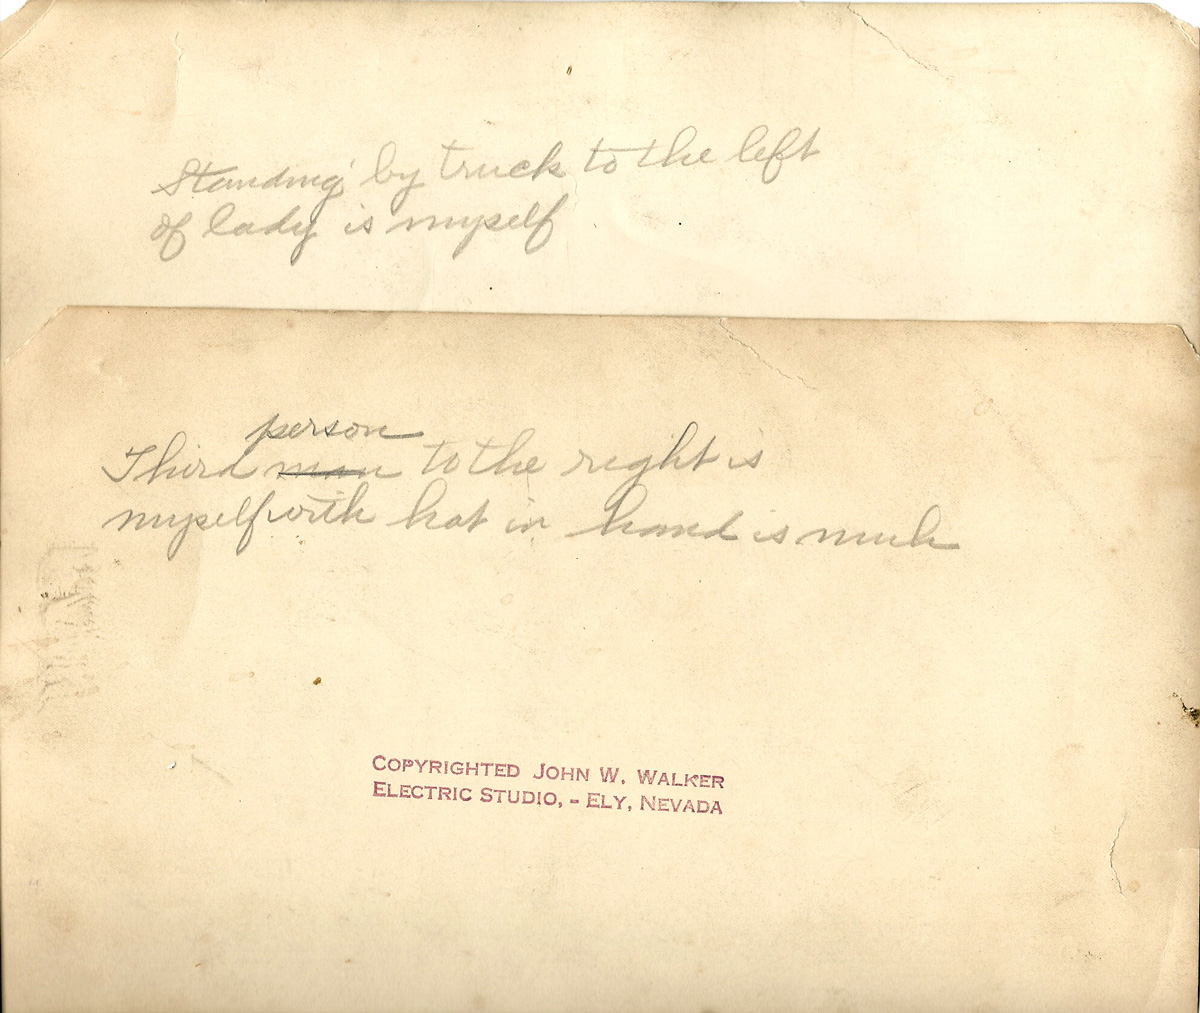 Standing by truck to the left
of lady is myself
person
Third man to the right is
myself with hat in hand is
COPYRIGHTED JOHN W. WALKER
ELECTRIC STUDIO, - ELY, NEVADA